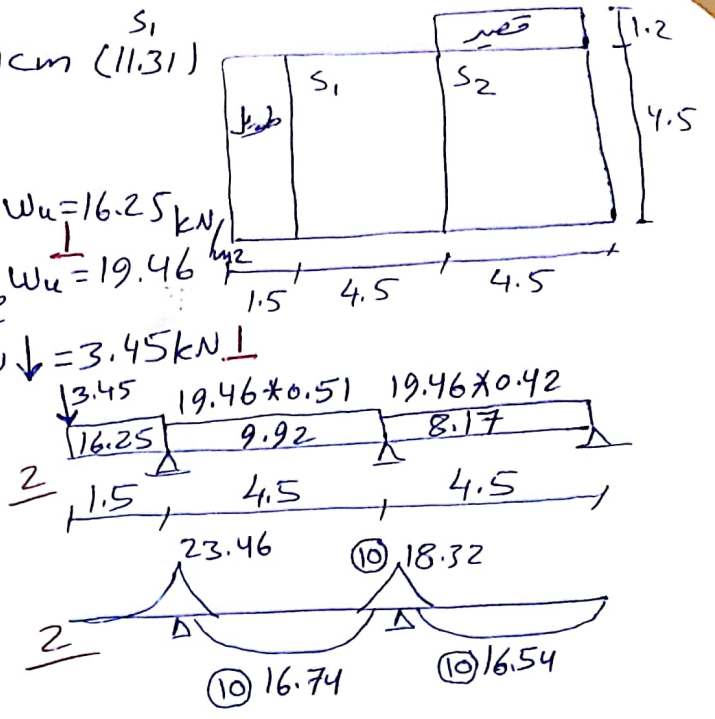 S₁
cm (11.31)
قصير
1.2
طويل
S₁
S₂
4.5
Wu=16.25 kN/m2
Wu=19.46
1.5 4.5 4.5
↓=3.45kN
3.45 19.46*0.51 19.46*0.42
16.25 9.92 8.17
2
1.5 4.5 4.5
23.46 10 18.32
2
10 16.74 10 16.54